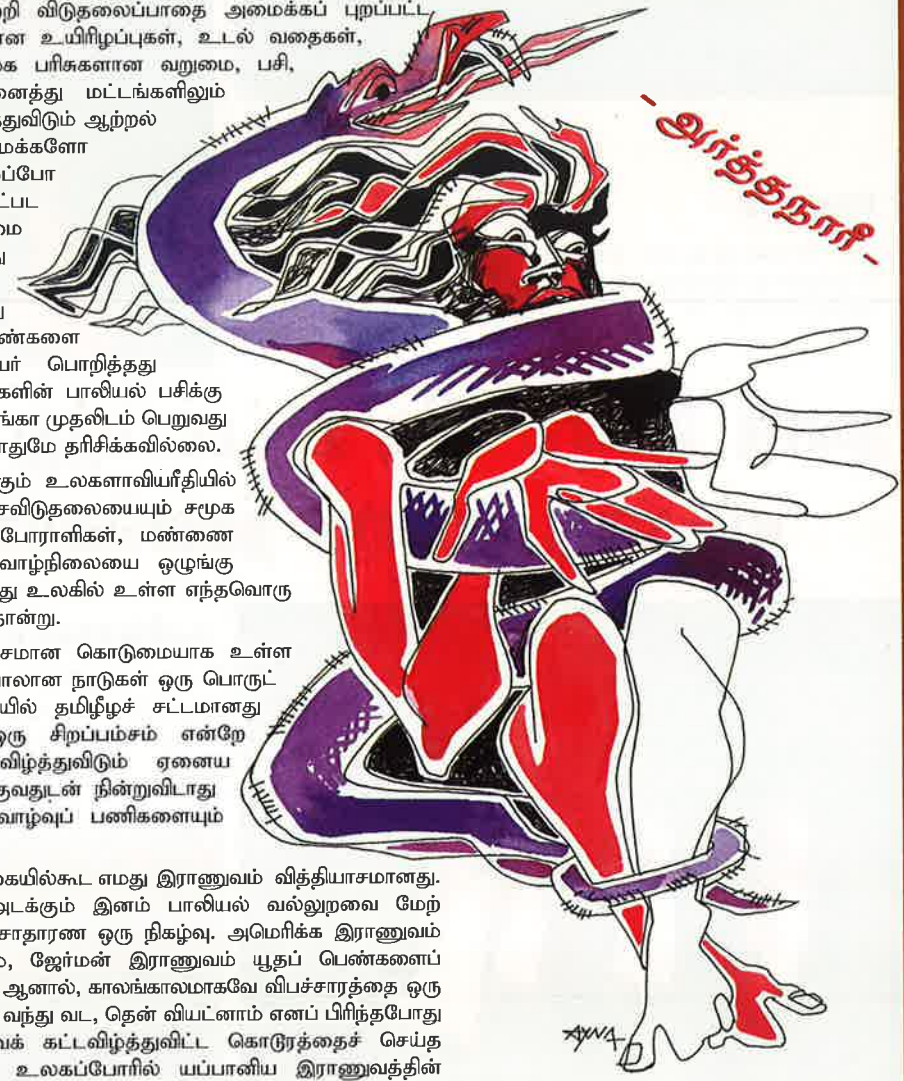 றி விடுதலைப்பாதை அமைக்கப் புறப்பட்ட
ன உயிரிழப்புகள், உடல் வதைகள்,
க பரிசுகளான வறுமை, பசி,
னைத்து மட்டங்களிலும்
துவிடும் ஆற்றல்
மக்களோ
ப்போ
ட்பட
மை
ண்களை
யர் பொறித்தது
களின் பாலியல் பசிக்கு
ங்கா முதலிடம் பெறுவது
ாதுமே தரிசிக்கவில்லை.
கும் உலகளாவியரீதியில்
சவிடுதலையையும் சமூக
போராளிகள், மண்ணை
வாழ்நிலையை ஒழுங்கு
து உலகில் உள்ள எந்தவொரு
தான்று.
சமான கொடுமையாக உள்ள
பாலான நாடுகள் ஒரு பொருட்
யில் தமிழீழச் சட்டமானது
ஒரு சிறப்பம்சம் என்றே
விழ்த்துவிடும் ஏனைய
குவதுடன் நின்றுவிடாது
வாழ்வுப் பணிகளையும்
கையில்கூட எமது இராணுவம் வித்தியாசமானது.
அடக்கும் இனம் பாலியல் வல்லுறவை மேற்
சாதாரண ஒரு நிகழ்வு. அமெரிக்க இராணுவம்
ம், ஜேர்மன் இராணுவம் யூதப் பெண்களைப்
ஆனால், காலங்காலமாகவே விபச்சாரத்தை ஒரு
வந்து வட, தென் வியட்னாம் எனப் பிரிந்தபோது
வக் கட்டவிழ்த்துவிட்ட கொடூரத்தைச் செய்த
உலகப்போரில் யப்பானிய இராணுவத்தின்
- அர்த்தநாரீ -
AYNA